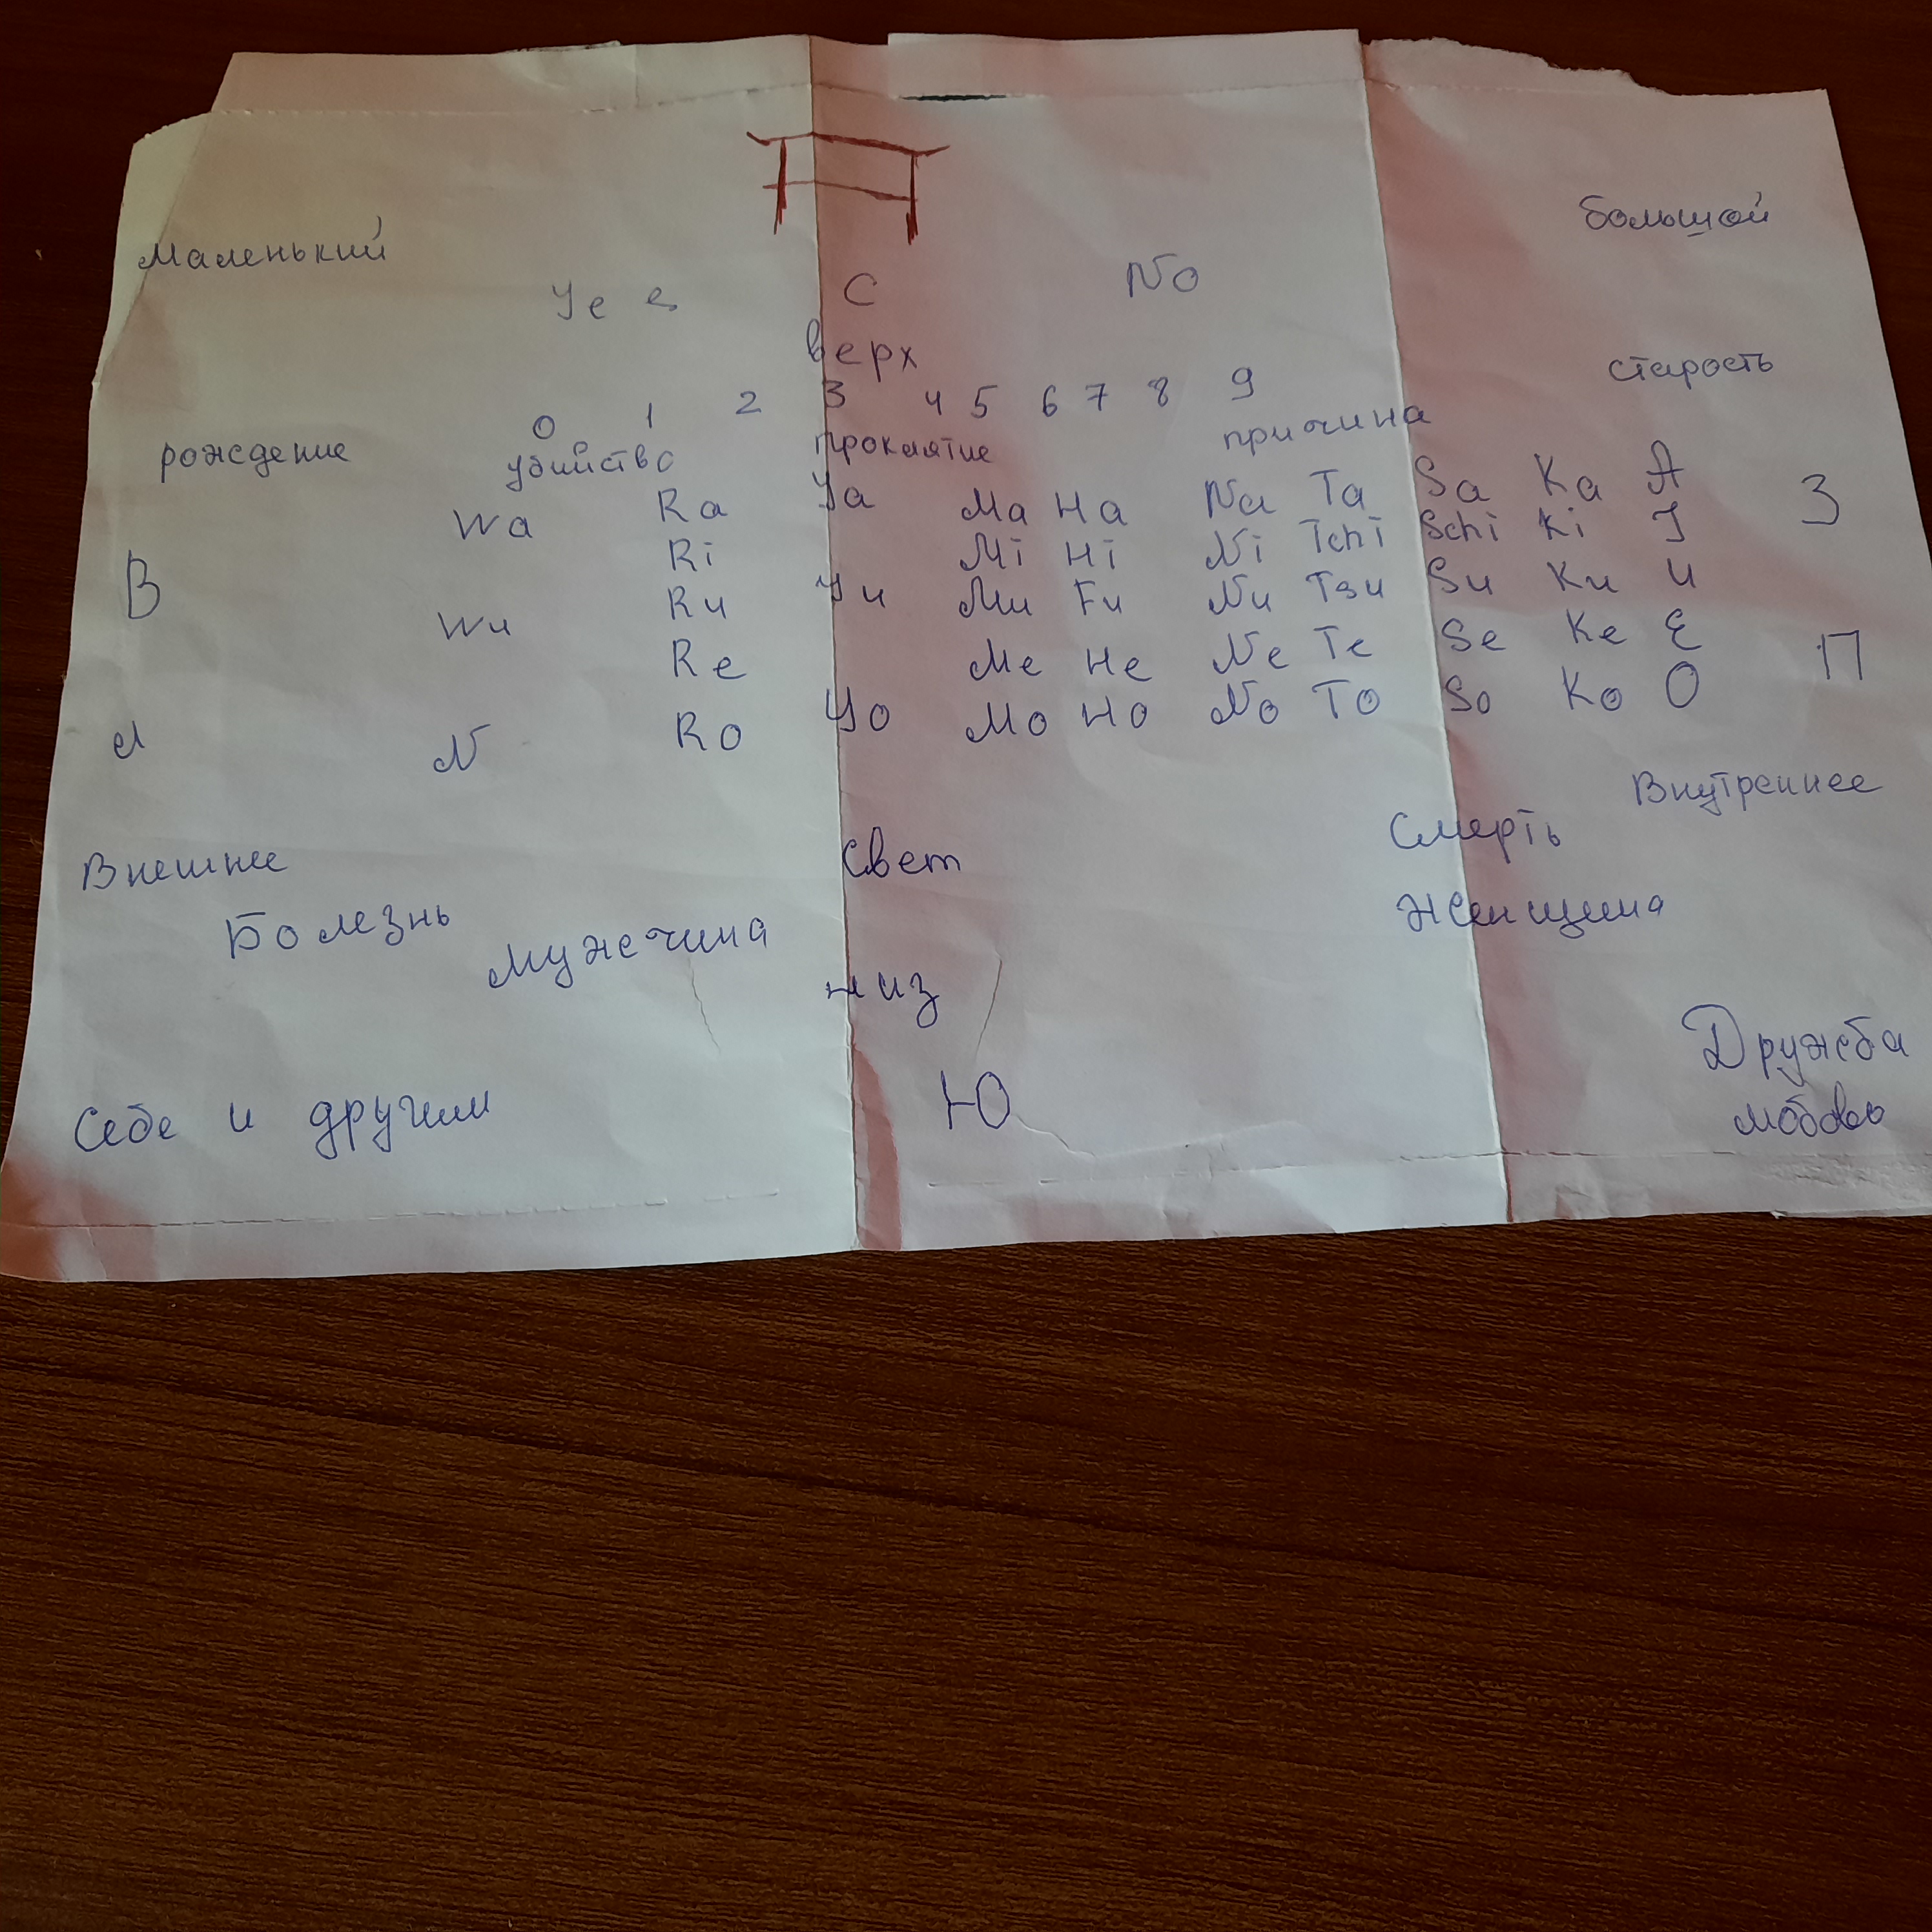 Маленький большой
Yes С No
верх
старость
0 1 2 3 4 5 6 7 8 9
рождение убийство проклятие причина
Wa Ra Ya Ma Ha Na Ta Sa Ka A З
Ri Mi Hi Ni Tchi Schi Ki I
В Ru Yu Mu Fu Nu Tsu Su Ku U
Wu Re Me He Ne Te Se Ke E П
Л N Ro Yo Mo Ho No To So Ko O
Внутреннее
Внешнее свет Смерть
Болезнь Мужчина Женщина
низ
Дружба
Себе и другим Ю любовь